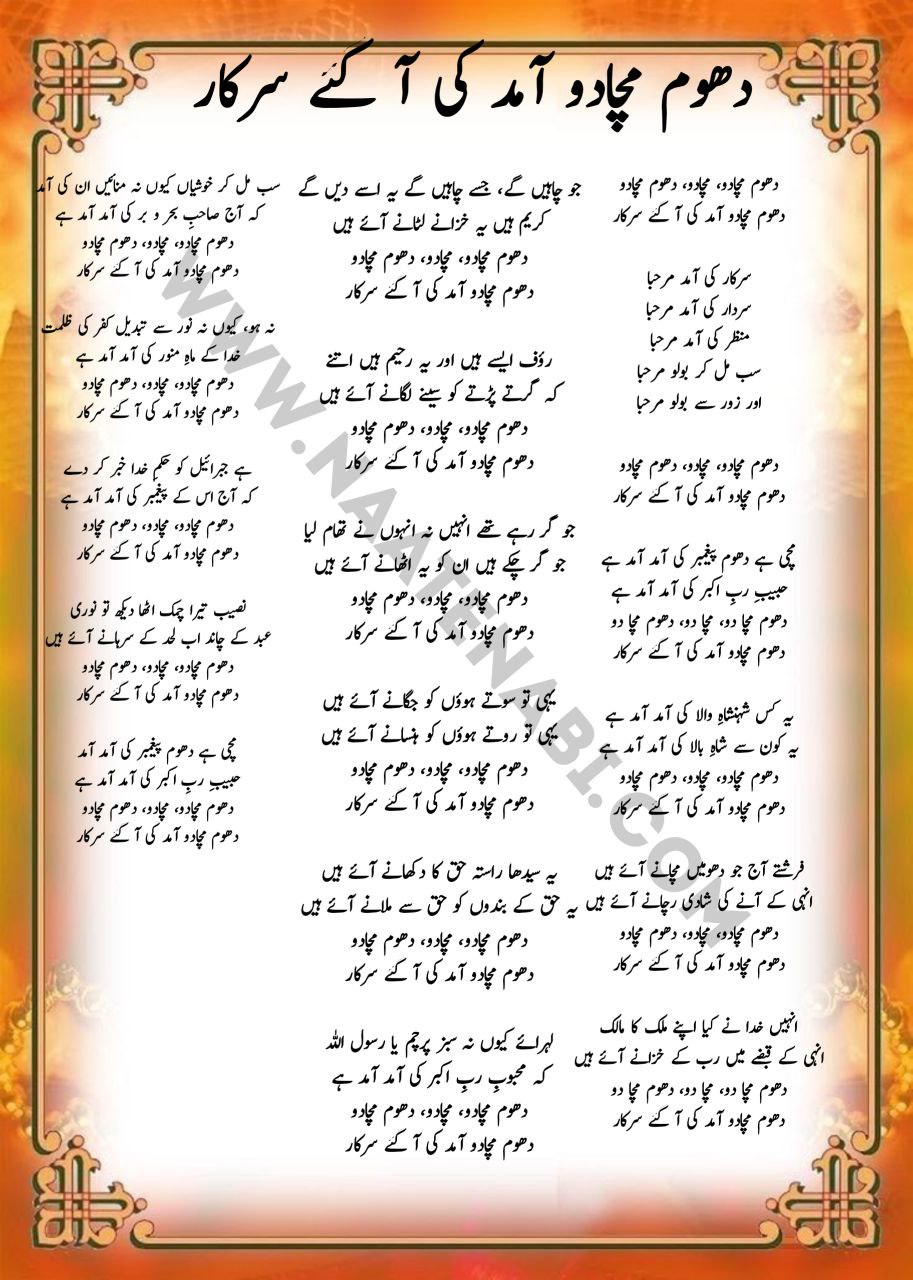 دھوم مچادو آمد کی آ گئے سرکار
دھوم مچادو، مچادو، دھوم مچادو
دھوم مچادو آمد کی آ گئے سرکار
سرکار کی آمد مرحبا
سردار کی آمد مرحبا
منظر کی آمد مرحبا
سب مل کر بولو مرحبا
اور زور سے بولو مرحبا
دھوم مچادو، مچادو، دھوم مچادو
دھوم مچادو آمد کی آ گئے سرکار
مچی ہے دھوم پیغمبر کی آمد آمد ہے
حبیبِ ربِ اکبر کی آمد آمد ہے
دھوم مچا دو، مچا دو، دھوم مچا دو
دھوم مچادو آمد کی آ گئے سرکار
یہ کس شہنشاہِ والا کی آمد آمد ہے
یہ کون سے شاہِ بالا کی آمد آمد ہے
دھوم مچادو، مچادو، دھوم مچادو
دھوم مچادو آمد کی آ گئے سرکار
فرشتے آج جو دھومیں مچانے آئے ہیں
انہی کے آنے کی شادی رچانے آئے ہیں
دھوم مچادو، مچادو، دھوم مچادو
دھوم مچادو آمد کی آ گئے سرکار
انہیں خدا نے کیا اپنے ملک کا مالک
انہی کے قبضے میں رب کے خزانے آئے ہیں
دھوم مچا دو، مچا دو، دھوم مچا دو
دھوم مچادو آمد کی آ گئے سرکار
جو چاہیں گے، جسے چاہیں گے یہ اسے دیں گے
کریم ہیں یہ خزانے لٹانے آئے ہیں
دھوم مچادو، مچادو، دھوم مچادو
دھوم مچادو آمد کی آ گئے سرکار
رؤف ایسے ہیں اور یہ رحیم ہیں اتنے
کہ گرتے پڑتے کو سینے لگانے آئے ہیں
دھوم مچادو، مچادو، دھوم مچادو
دھوم مچادو آمد کی آ گئے سرکار
جو گر رہے تھے انہیں نہ انہوں نے تھام لیا
جو گر چکے ہیں ان کو یہ اٹھانے آئے ہیں
دھوم مچادو، مچادو، دھوم مچادو
دھوم مچادو آمد کی آ گئے سرکار
یہی تو سوتے ہوؤں کو جگانے آئے ہیں
یہی تو روتے ہوؤں کو ہنسانے آئے ہیں
دھوم مچادو، مچادو، دھوم مچادو
دھوم مچادو آمد کی آ گئے سرکار
یہ سیدھا راستہ حق کا دکھانے آئے ہیں
یہ حق کے بندوں کو حق سے ملانے آئے ہیں
دھوم مچادو، مچادو، دھوم مچادو
دھوم مچادو آمد کی آ گئے سرکار
لہرائے کیوں نہ سبز پرچم یا رسول اللہ
کہ محبوبِ ربِ اکبر کی آمد آمد ہے
دھوم مچادو، مچادو، دھوم مچادو
دھوم مچادو آمد کی آ گئے سرکار
سب مل کر خوشیاں کیوں نہ منائیں ان کی آمد
کہ آج صاحبِ بحر و بر کی آمد آمد ہے
دھوم مچادو، مچادو، دھوم مچادو
دھوم مچادو آمد کی آ گئے سرکار
نہ ہو، کیوں نہ نور سے تبدیل کفر کی ظلمت
خدا کے ماہِ منور کی آمد آمد ہے
دھوم مچادو، مچادو، دھوم مچادو
دھوم مچادو آمد کی آ گئے سرکار
ہے جبرائیل کو حکمِ خدا خبر کر دے
کہ آج اس کے پیغمبر کی آمد آمد ہے
دھوم مچادو، مچادو، دھوم مچادو
دھوم مچادو آمد کی آ گئے سرکار
نصیب تیرا چمک اٹھا دیکھ تو نوری
عبد کے چاند اب لحد کے سرہانے آئے ہیں
دھوم مچادو، مچادو، دھوم مچادو
دھوم مچادو آمد کی آ گئے سرکار
مچی ہے دھوم پیغمبر کی آمد آمد
حبیبِ ربِ اکبر کی آمد آمد ہے
دھوم مچادو، مچادو، دھوم مچادو
دھوم مچادو آمد کی آ گئے سرکار
WWW.NAATENABI.COM